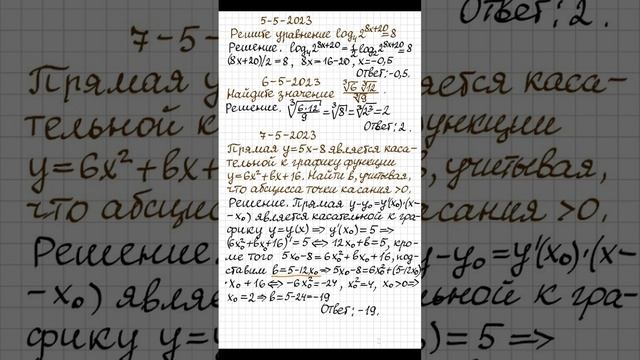 5-5-2023
Решите уравнение log₄2^(8x+20)=8
Решение. log₄2^(8x+20)=½log₂2^(8x+20)=8
(8x+20)/2=8, 8x=16-20, x=-0,5
Ответ:-0,5.
6-5-2023
Найдите значение ∛6·∛12/∛9.
Решение. ∛(6·12/9)=∛8=∛2³=2
Ответ: 2.
7-5-2023
Прямая y=5x-8 является каса-
тельной к графику функции
y=6x²+bx+16. Найти b, учитывая,
что абсцисса точки касания >0.
Решение. Прямая y-y₀=y'(x₀)·(x-
-x₀) является касательной к гра-
фику y=y(x) ⇒ y'(x₀)=5 ⇒
(6x₀²+bx₀+16)'=5 ⇔ 12x₀+b=5, кро-
ме того 5x₀-8=6x₀²+bx₀+16, под-
ставим b=5-12x₀ ⇒ 5x₀-8=6x₀²+(5-12x₀)
·x₀+16 ⇔ -6x₀²=-24, x₀²=4, x₀>0 ⇒
x₀=2 ⇒ b=5-24=-19
Ответ: -19.
Ответ: 2.
7-5-
Прямая y
тельной к
y=6x²+bx+
что абсцис
Решение.
-x₀) являе
фику y=y
яется каса-
функции
b, учитывая,
сания >0.
y-y₀=y'(x₀)·(x-
льной к гра-
=5 ⇒